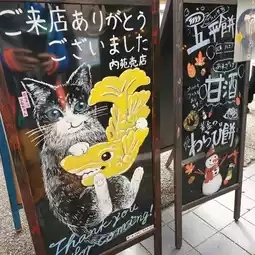 ご来店ありがとう
ございました
内苑売店
Thank you
for coming!
五平餅
甘酒
わらび餅